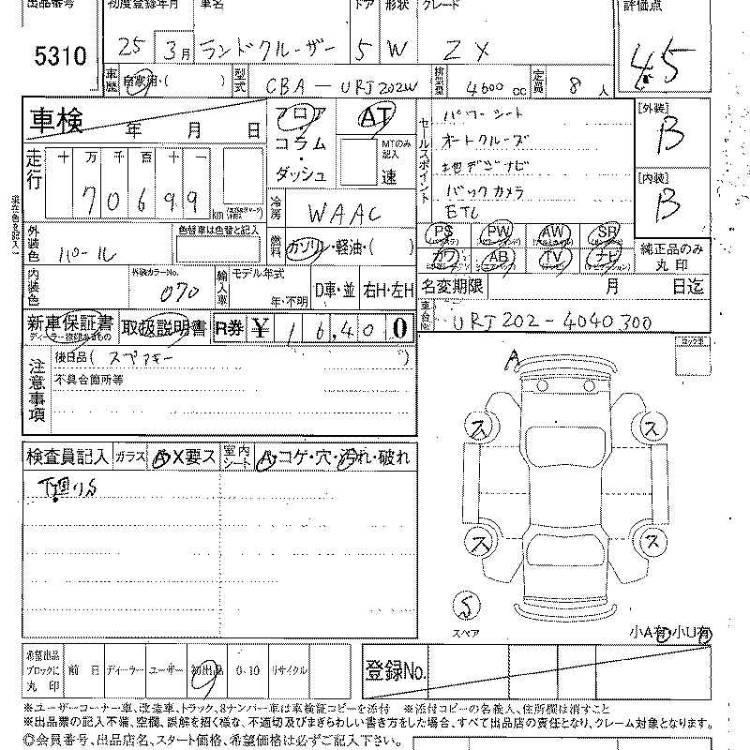 出品番号 初度登録年月 車名 ドア 形状 グレード 評価点
5310 25 3月 ランドクルーザー 5 W ZX 4.5
車歴 自家用・( ) 型式 CBA-URJ202W 排気量 4600 cc 定員 8 人
車検 年 月 日
フロア コラム・ダッシュ
AT
MTのみ記入 速
セールスポイント
パワーシート
オートクルーズ
地デジナビ
バックカメラ
ETC
[外装] B
[内装] B
走行 十 万 千 百 十 一
70699 km
冷房 WAAC
燃料 ガソリン・軽油・( )
PS PW AW SR
カワ AB TV ナビ
純正品のみ丸印
外装色 パール 色替車は色替と記入
内装色 外装カラーNo. 070
輸入車 モデル年式 年・不明 D車・並 右H・左H
名変期限 月 日迄
車台No. URJ202-4040300
新車保証書 取扱説明書 R券 ¥ 16,400
ロック不
注意事項
後日品(スペアキー)
不具合箇所等
検査員記入 ガラス A・X要ス 室内シート A・コゲ・穴・汚れ・破れ
下回りS
A
ス ス
ス ス
S
スペア
小A有・小U有
希望出品ブロックに丸印 前日 ディーラー ユーザー 初出品 0-10 リサイクル
登録No.
※ユーザーコーナー車、改造車、トラック、8ナンバー車は車検証コピーを添付 ※添付コピーの名義人、住所欄は消すこと
※出品票の記入不備、空欄、誤解を招く様な、不適切及びまぎらわしい書き方をした場合、すべて出品店の責任となり、クレーム対象となります。
◎会員番号、出品店名、スタート価格、希望価格は必ずご記入下さい。